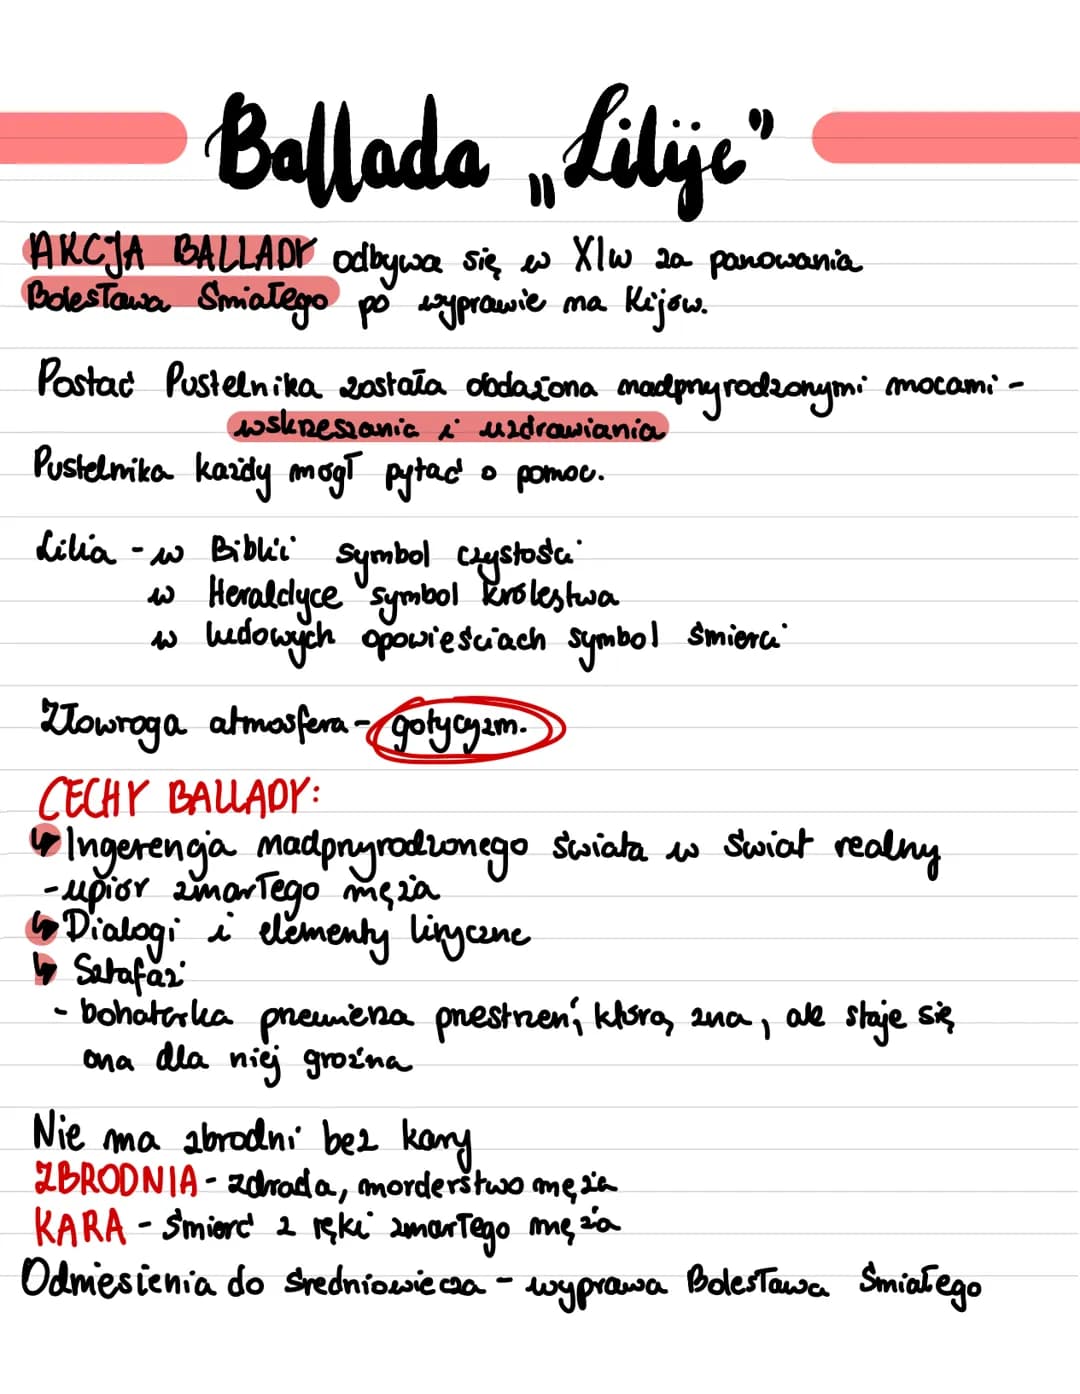 Ballada „Lilije"
AKCJA BALLADY odbywa się w XIw za panowania
Bolesława Śmiałego po wyprawie na Kijów.
Postać Pustelnika została obdażona nadprzyrodzonymi mocami -
wskrzeszanie i uzdrawiania
Pustelnika każdy mógł pytać o pomoc.
Lilia - w Biblii symbol czystości
w Heraldyce symbol królestwa
w ludowych opowieściach symbol śmierci
Złowroga atmosfera - gotycyzm.
CECHY BALLADY:
↳ Ingerencja nadprzyrodzonego świata w świat realny
- upiór zmarłego męża
↳ Dialogi i elementy liryczne
↳ Sztafaż
- bohaterka przemierza przestrzeń, którą zna, ale staje się
ona dla niej groźna
Nie ma zbrodni bez kary
ZBRODNIA - zdrada, morderstwo męża
KARA - śmierć z ręki zmarłego męża
Odniesienia do średniowiecza - wyprawa Bolesława Śmiałego